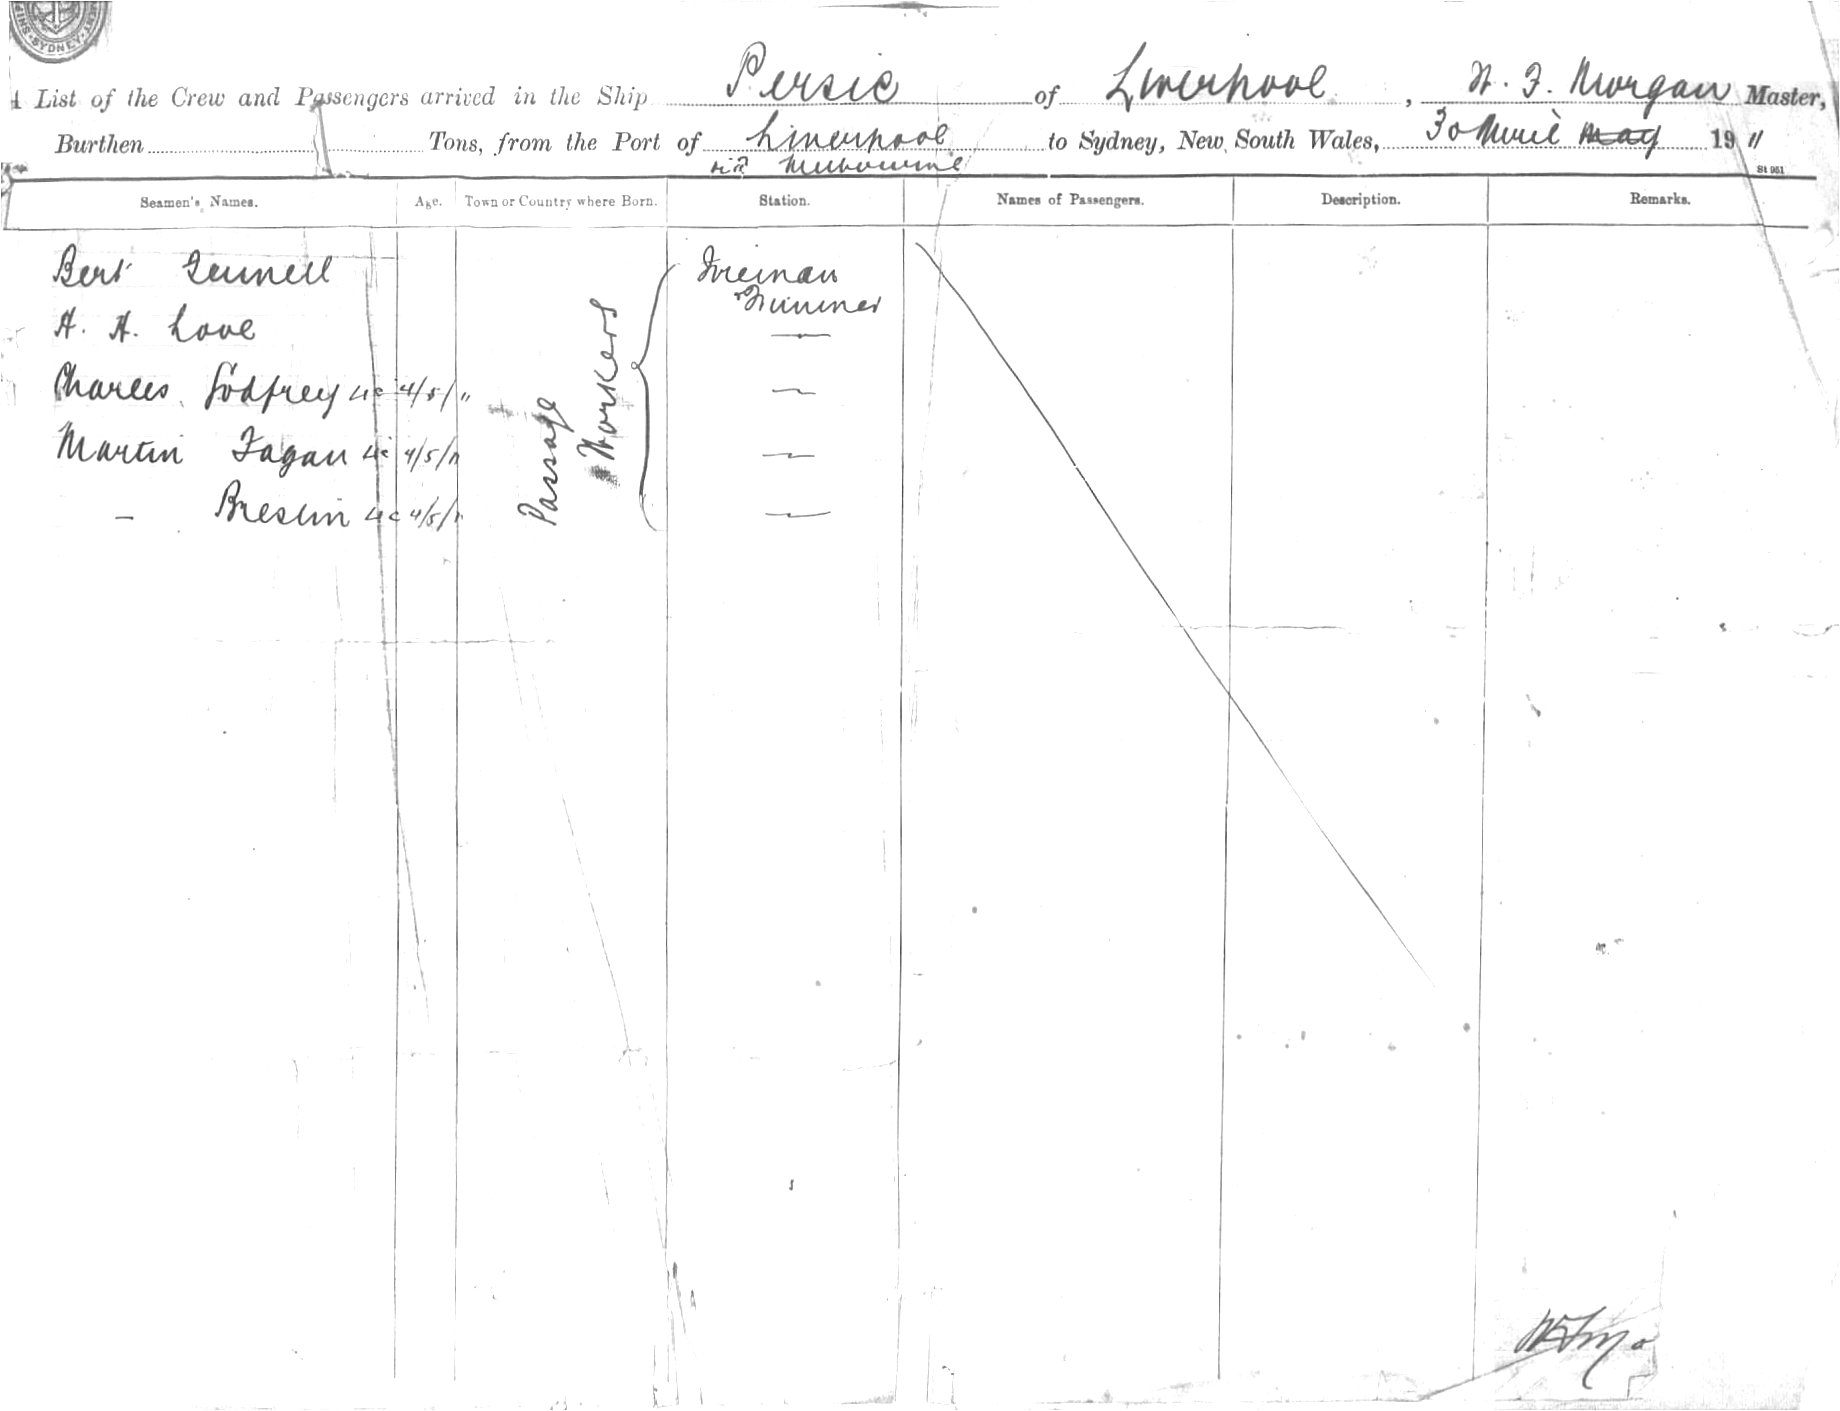 SYDNEY
List of the Crew and Passengers arrived in the Ship Persic of Liverpool, W. F. Morgan Master,
Burthen Tons, from the Port of Liverpool to Sydney, New South Wales, 30 April May 19 11
via Melbourne
St 951
Seamen's Names. Age. Town or Country where Born. Station. Names of Passengers. Description. Remarks.
Bert Fireman
Trimmer
A. A. Love
Charles Godfrey 4/5/11
Martin Fagan 4/5/11
– Breslin 4/5/11
Passage
Workers